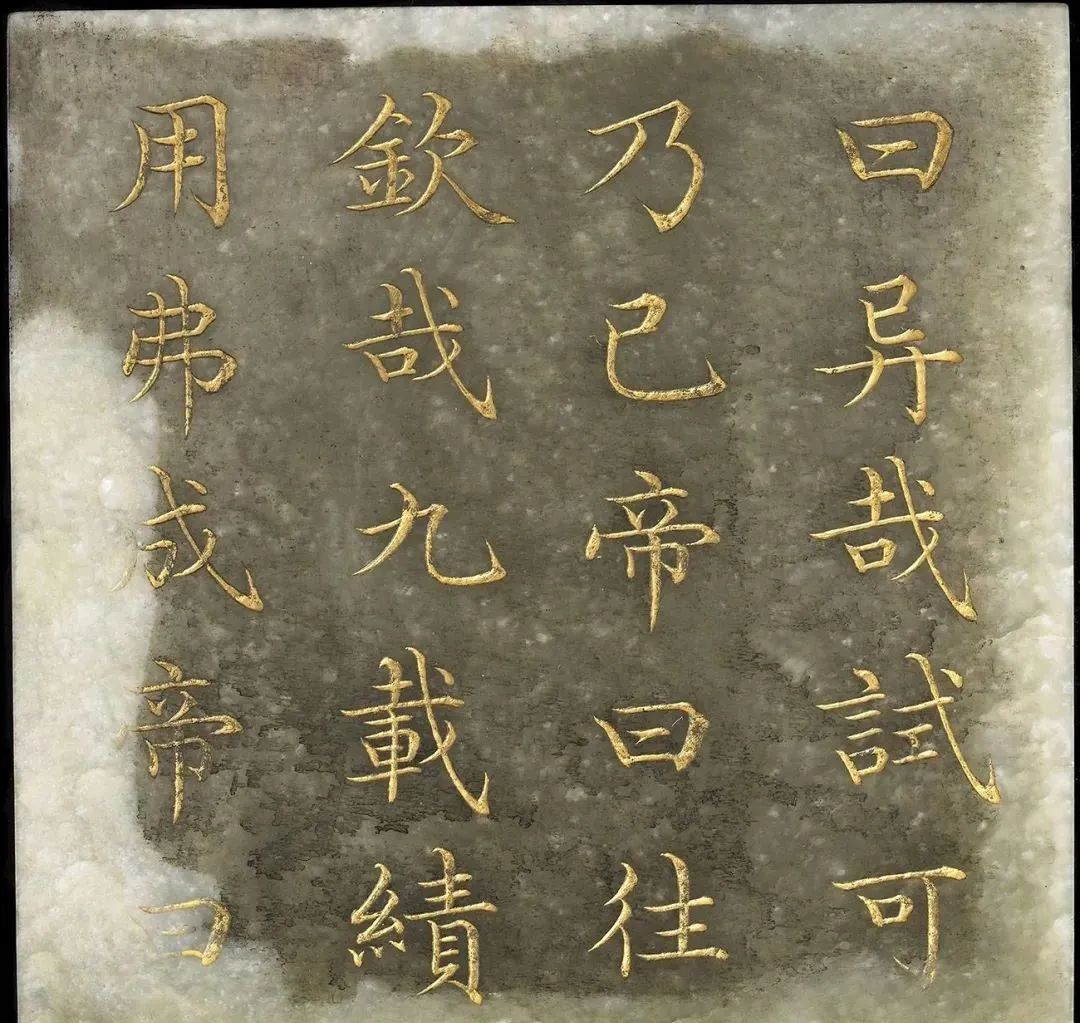 曰异哉試可
乃已帝曰往
欽哉九載績
用弗成帝曰